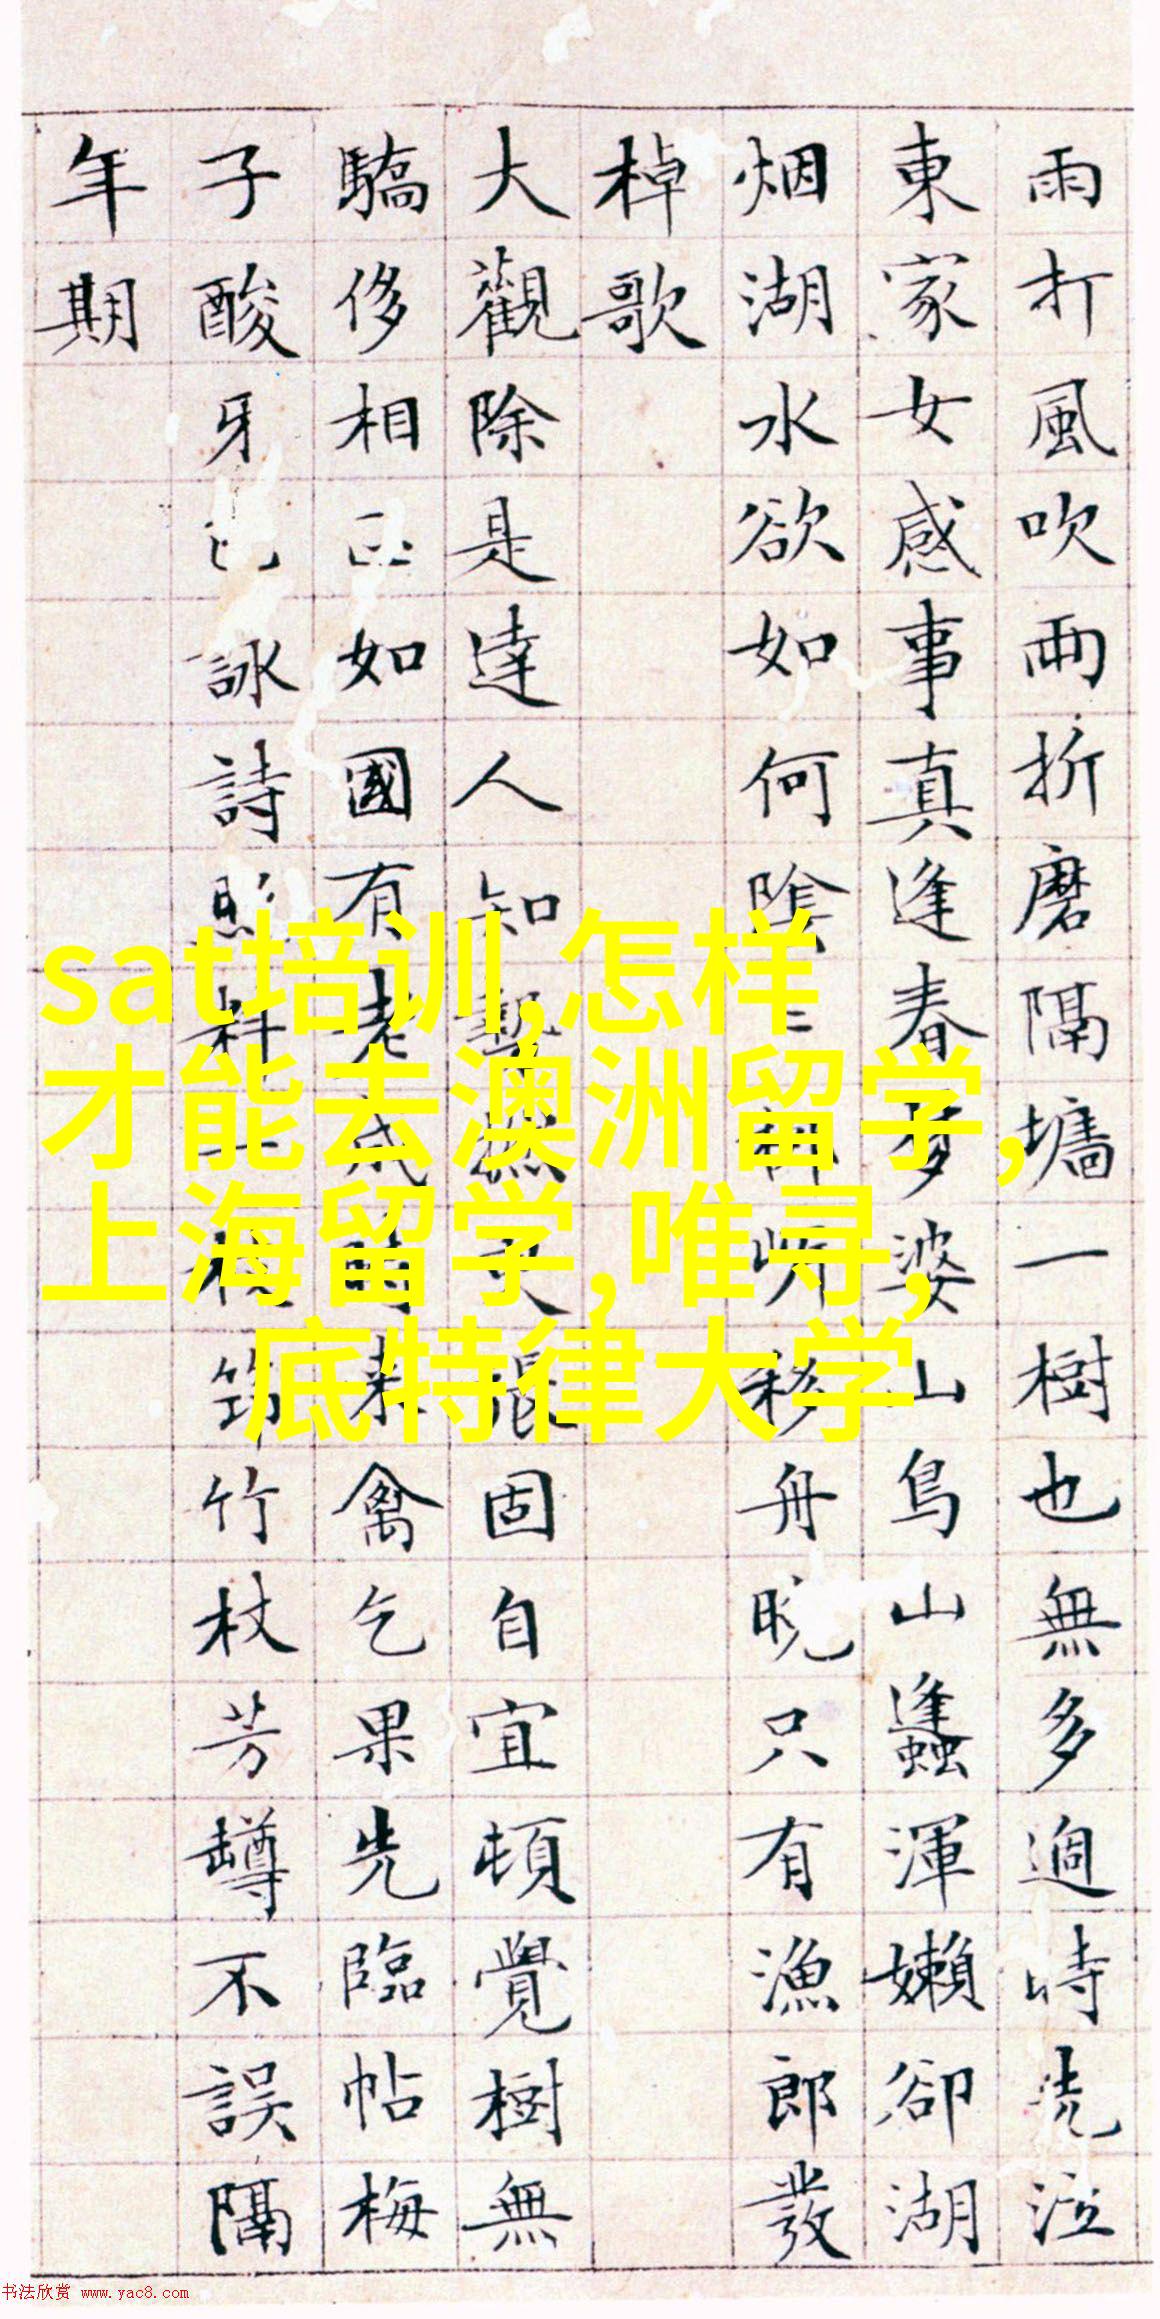 雨打風吹雨折磨隔墻一樹也無多過時洗泣
東家女感事真逢春夢婆山鳥山蠭渾嬾卻湖
烟湖水欲如何陰移舟晚只有漁郎發
棹歌
大觀除是達人知固自宜頓覺樹無
驕侈相如國有老成禽乞果先臨帖梅
子酸牙詠詩竹杖芳罇不誤隔
年期
sat培训,怎样
才能去澳洲留学,
上海留学,唯寻,
底特律大学
书法欣赏 www.yac8.com